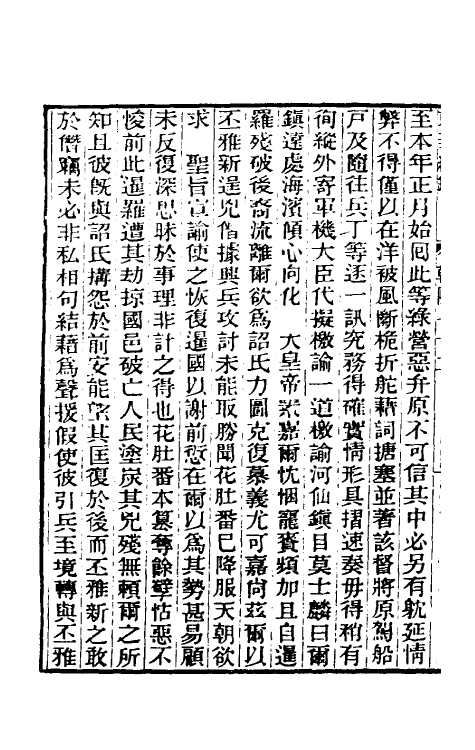 至本年正月始囘此等綠營惡弁原不可信其中必另有躭延情
弊不得僅以在洋被風斷桅折舵藉詞搪塞並著該督將原駕船
戸及隨往兵丁等逐一訊究務得確實情形具摺速奏毋得稍有
徇縱外寄軍機大臣代擬檄諭一道檄諭河仙鎭目莫士麟曰爾
鎭遠處海濱傾心向化　大皇帝深嘉爾忱悃寵賚頻加且自暹
羅殘破後裔流離爾欲爲詔氏力圖克復慕義尤可嘉尚兹爾以
丕雅新逞兇僭據興兵攻討未能取勝聞花肚番巳降服天朝欲
求　聖旨宣諭使之恢復暹國以謝前愆在爾以爲其勢甚易顧
未反復深思昧於事理非計之得也花肚番本簒奪餘孽怙惡不
悛前此暹羅遭其劫掠國邑破亡人民塗炭其兇殘無賴爾之所
知且彼旣與詔氏搆怨於前安能望其匡復於後而丕雅新之敢
於僭竊未必非私相句結藉爲聲援假使彼引兵至境轉與丕雅